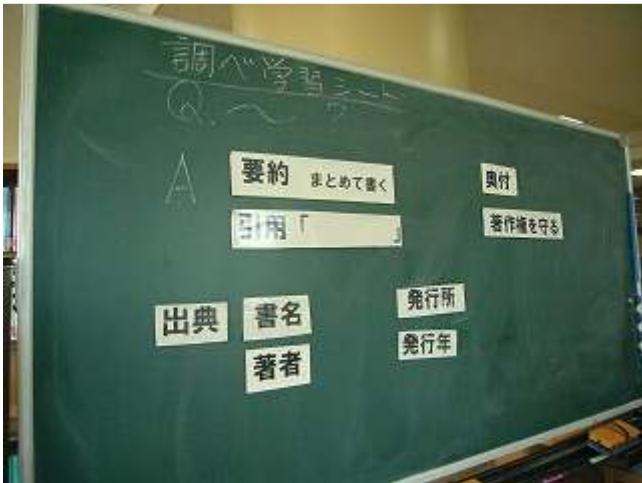 調べ学習シート
Q. 〜?
A
要約 まとめて書く
引用「 」
奥付
著作権を守る
出典
書名
著者
発行所
発行年